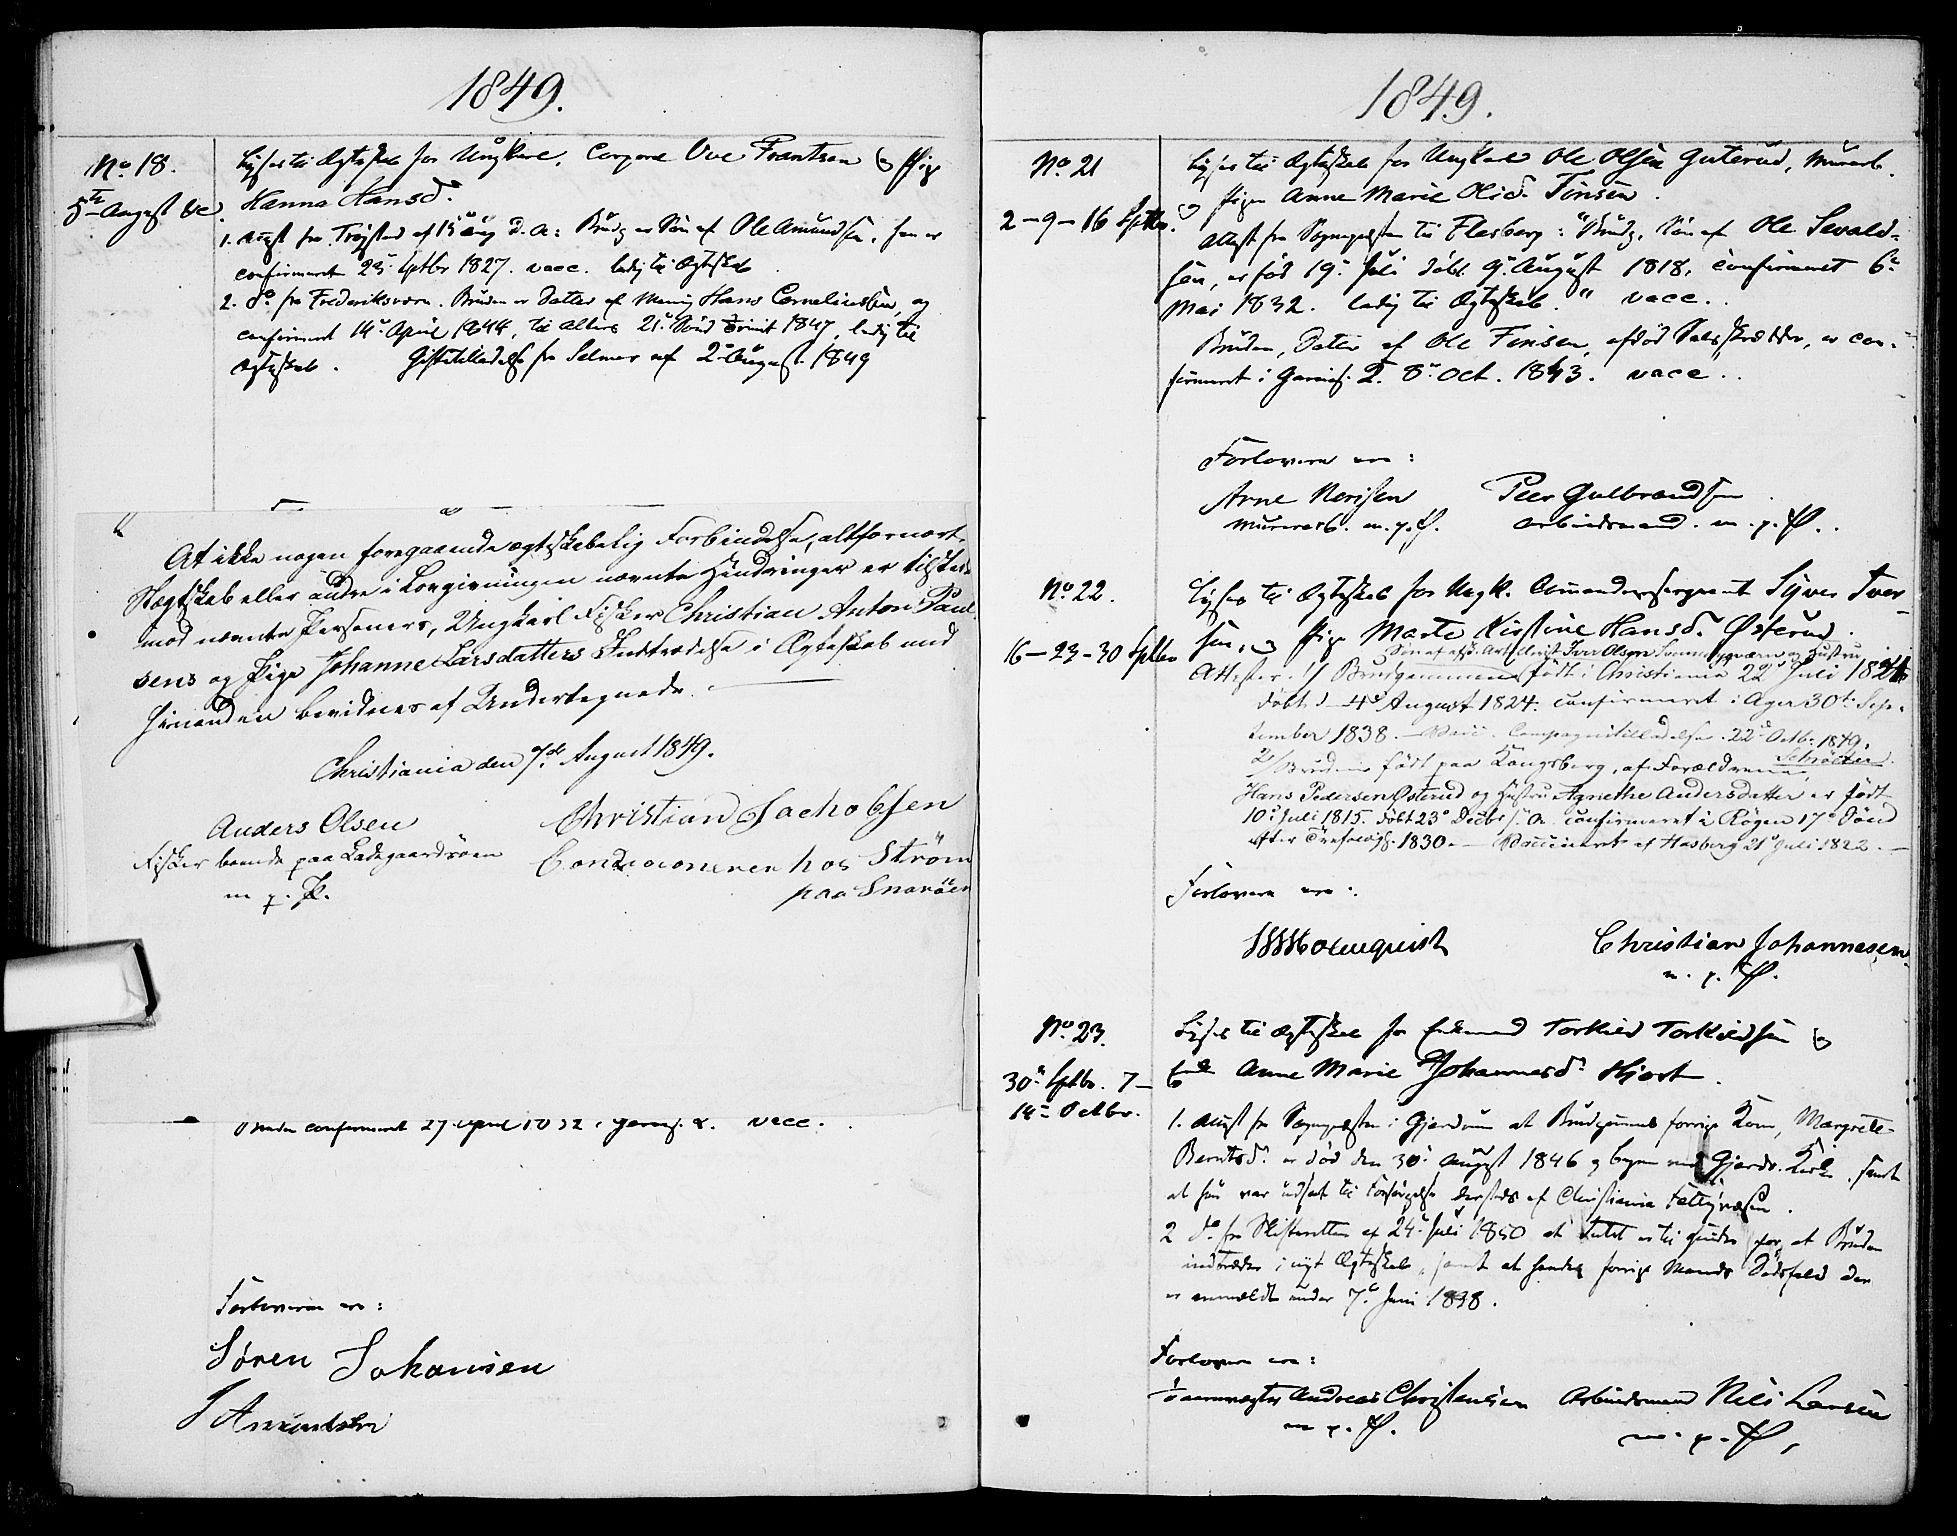 1849.
No 18.
5te August &c.
Lyses til Ægteskab for Ungkarl, Corporal Ove Frantsen og Pige
Hanna Hansd.
1. Attest fra Trøgstad af 15 Aug d. A: Brudg er Søn af Ole Amundsen, han er
confirmeret 23 Septbr 1827. vacc. ledig til Ægteskab
2. do fra Frederiksværn. Bruden er Datter af Hans Corneliussen, og
confirmeret 14 April 1844, til Alters 21 Sønd Trinit 1847, ledig til
Ægteskab. Giftetilladelse fra af 2 August 1849
At ikke nogen foregaaende ægteskabelig Forbindelse, altfornært
Slægtskab eller andre i Lovgivningen nævnte Hindringer er tilstede
mod nævnte Personers, Ungkarl Fisker Christian Anton Paul-
sens og Pige Johanne Larsdatters Indtrædelse i Ægteskab med
hinanden bevidnes af Undertegnede.
Christiania den 7de August 1849.
Anders Olsen
Fisker boende paa Ladegaardsøen
m. p. P.
Christian Jachobsen
hos Strøm
paa Snarøen
confirmeret 27 April vacc.
Forlovere ere:
Søren Johansen
Amundsen
1849.
No 21
2-9-16 Septbr.
Lyses til Ægteskab for Ungkarl Ole Olsen Guterud, Murarb.
og Pigen Anne Marie Olsd. Finsen.
Attest fra Sognepræsten til Flesberg: "Brudg. Søn af Ole Sevald-
sen, er født 19 Juli døbt 9 August 1818, confirmeret 6
Mai 1832. ledig til Ægteskab." vacc.
Bruden, Datter af Ole Finsen, afdød, er con-
firmeret i Garnis. 8 Oct. 1843. vacc.
Forlovere ere:
Arne
Murerarb. m. p. P.
Peer Gulbrandsen
Arbeidsmand. m. p. P.
No 22.
16-23-30 Septbr
Lyses til Ægteskab for Ungk. Commandeersergeant Syver Iver-
sen, og Pige Marte Kirstine Hansd. Østerud.
Søn af Iver Olsen og Hustru
Attester: 1/ Brudgommen født i Christiania 22 Juli 1824
døbt 4 August 1824. confirmeret i Ager 30te Sep-
tember 1838. Compagnitilladelse 22 Octbr. 1849.
2/ Bruden født paa Kongsberg, af Forældrene
Hans Pedersen Østerud og Hustru Agnethe Andersdatter er født
10 Juli 1815. døbt 23 Decbr s. A. confirmeret i Røgen 17 Sønd
efter Trefoldigh. 1830. Vaccineret af Hasberg 21 Juli 1822.
Forlovere ere:
Holmquist
Christian Johannesen
m. p. P.
No 23.
30 Septbr. 7-
14 Octbr.
Lyses til Ægteskab for Enkemand Torkild Torkildsen og
Enke Anne Marie Johannesd. Hjort.
1. Attest fra Sognepræsten i Gjerdrum at Brudgommens forrige Kone, Margrete
Berntsd. er død den 30 August 1846 og begr. ved Gjerdr. Kirke, samt
at hun var udsat til Forsørgelse dersteds af Christiania Fattigvæsen.
2 do fra Skifteretten af 24 Juli 1850 at Intet er til Hinder for, at Bruden
indtræder i nyt Ægteskab, samt at hendes forrige Mands Dødsfald der
er anmeldt under 7 Juni 1838.
Forlovere ere:
Andreas Christensen
m. p. P.
Arbeidsmand Niels Larsen
m. p. P.